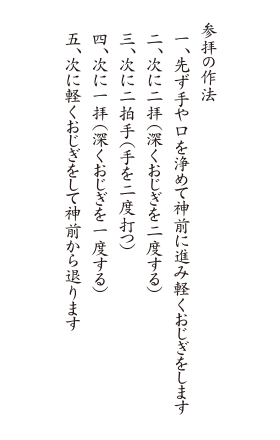 参拝の作法
一、先ず手や口を浄めて神前に進み軽くおじぎをします
二、次に二拝(深くおじぎを二度する)
三、次に二拍手(手を二度打つ)
四、次に一拝(深くおじぎを一度する)
五、次に軽くおじぎをして神前から退ります